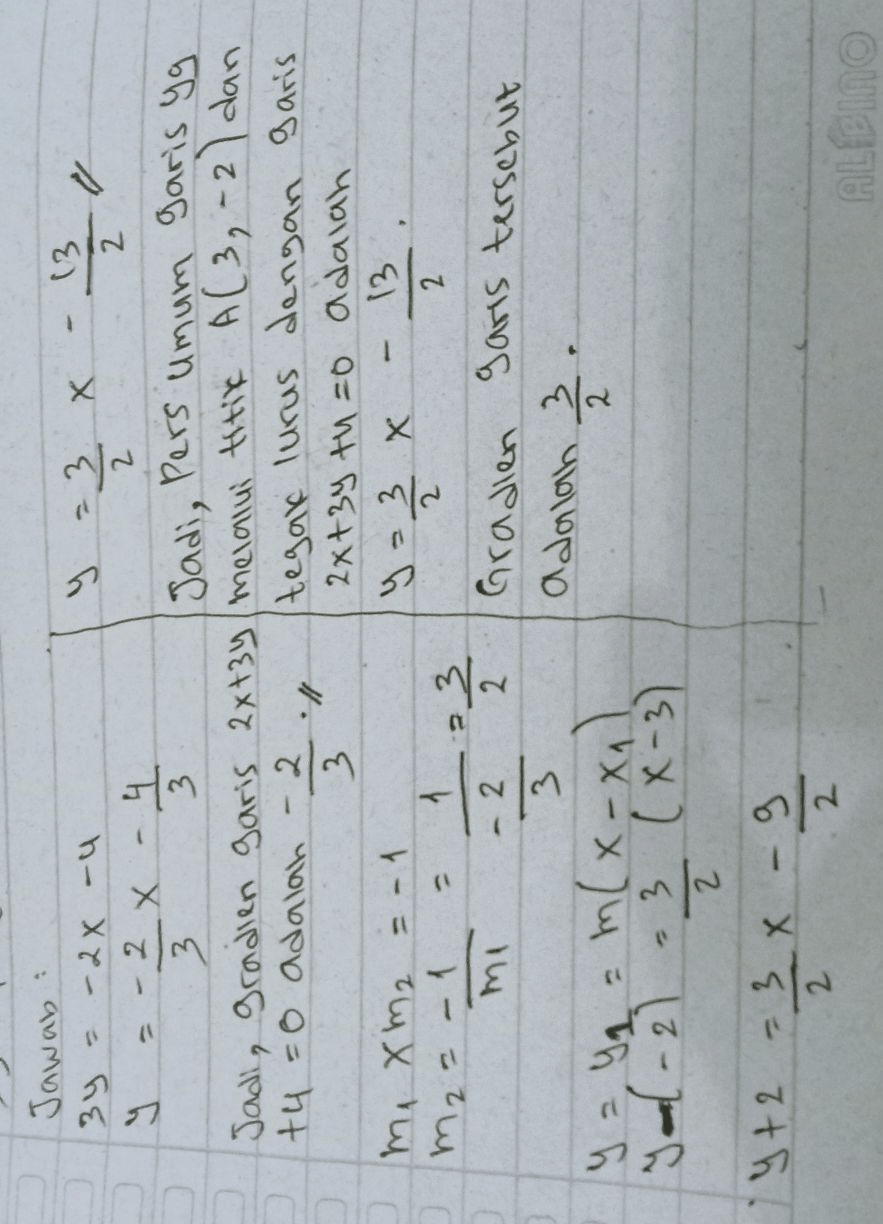 Jawab :
3y = -2x -4
y = -2/3 x - 4/3
Jadi, gradien garis 2x+3y
+4 =0 adalah -2/3 .//
m1 x m2 = -1
m2 = -1/m1 = 1/(-2/3) = 3/2
y = y1 = m(x - x1)
y-(-2) = 3/2 (x-3)
y+2 = 3/2 x - 9/2
y = 3/2 x - 13/2 //
Jadi, Pers umum garis yg
melalui titik A(3, -2) dan
tegak lurus dengan garis
2x+3y+4=0 adalah
y = 3/2 x - 13/2 .
Gradien garis tersebut
adalah 3/2 .
ALBINO